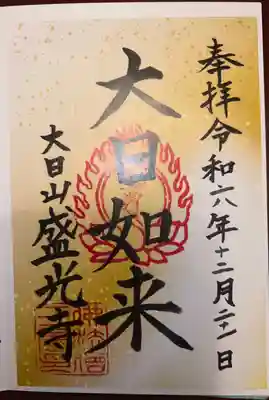 奉拝令和六年十二月二十一日
大日如来
大日山盛光寺